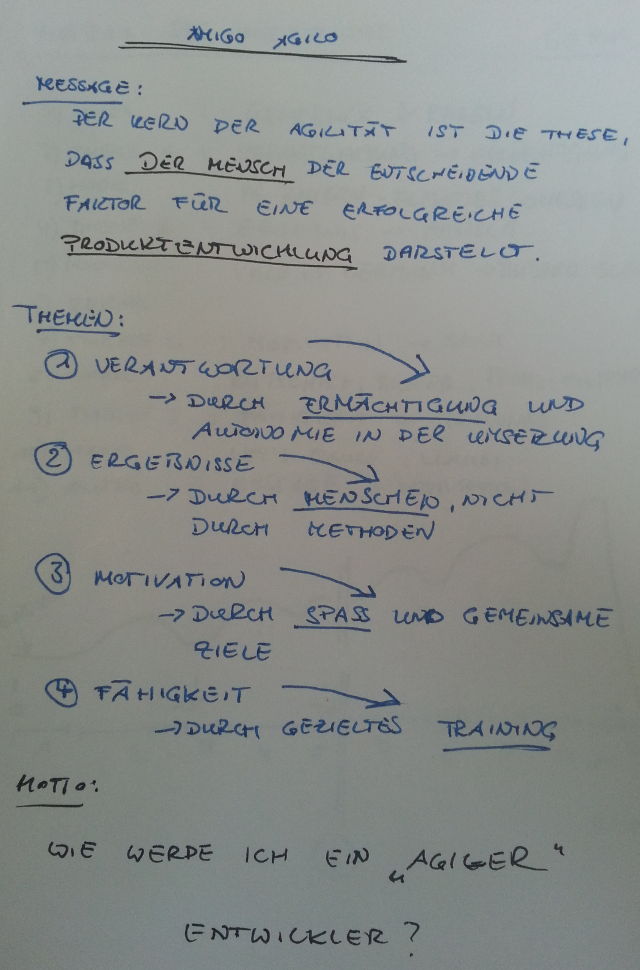 AMIGO AGILO
MESSAGE:
DER KERN DER AGILITÄT IST DIE THESE,
DASS DER MENSCH DER ENTSCHEIDENDE
FAKTOR FÜR EINE ERFOLGREICHE
PRODUKTENTWICHLUNG DARSTELLT.
THEMEN:
1 VERANTWORTUNG
→ DURCH ERMÄCHTIGUNG UND
AUTONOMIE IN DER UMSEZUNG
2 ERGEBNISSE
→ DURCH MENSCHEN, NICHT
DURCH METHODEN
3 MOTIVATION
→ DURCH SPASS UND GEMEINSAME
ZIELE
4 FÄHIGKEIT
→ DURCH GEZIELTES TRAINING
MOTTO:
WIE WERDE ICH EIN „AGIGER“
ENTWICKLER?